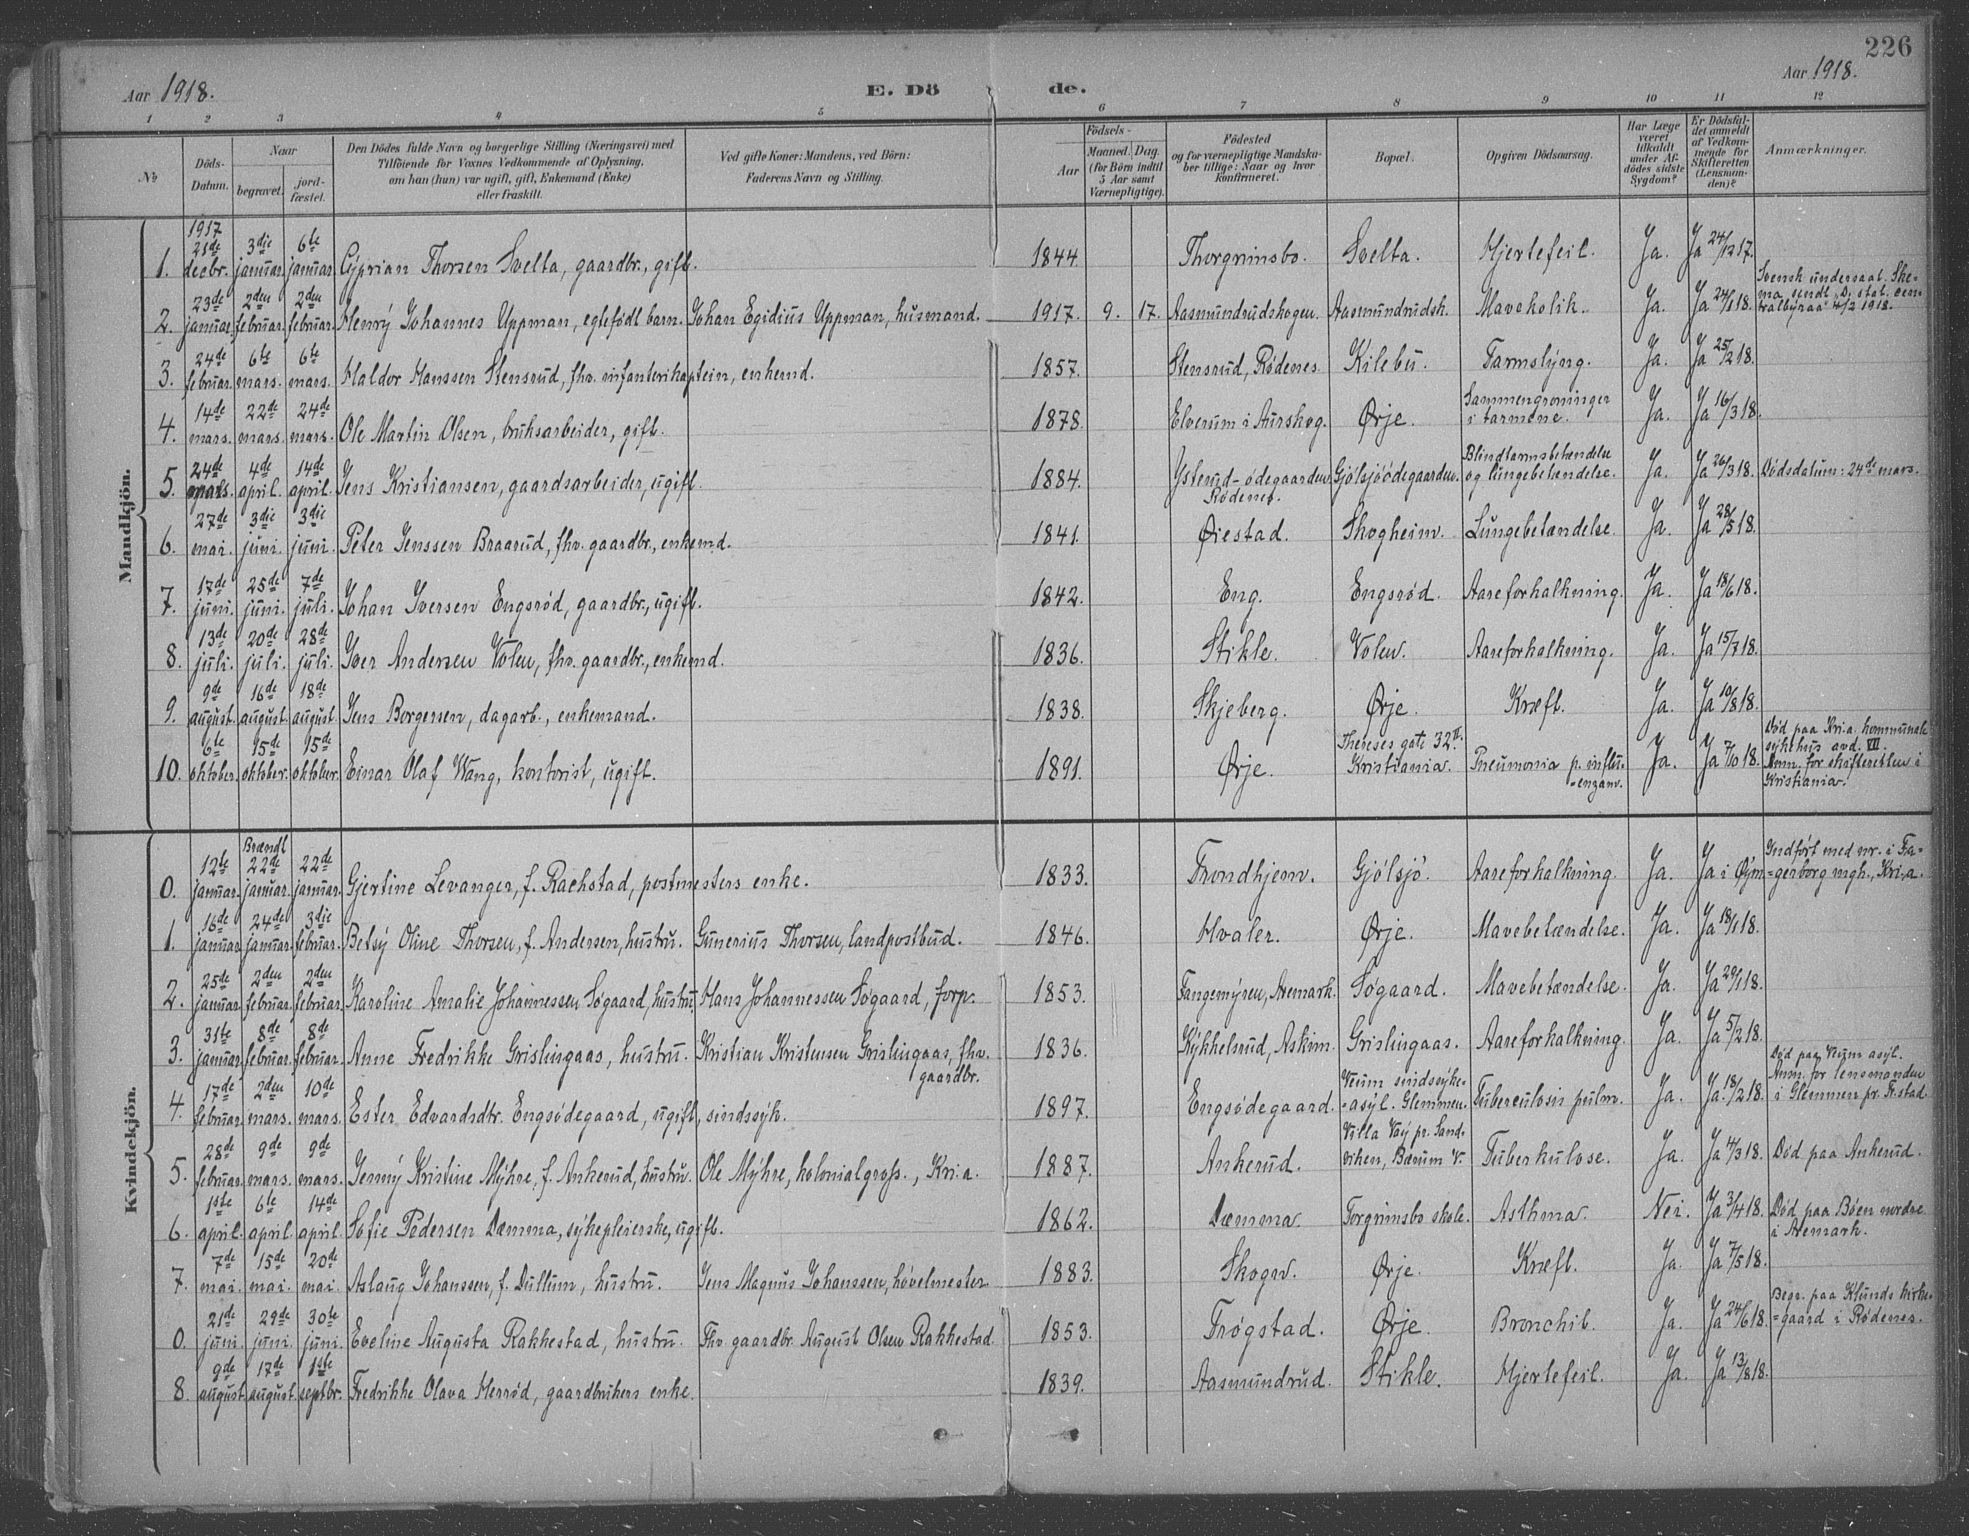 226
Aar 1918.
E. Dö de.
Aar 1918.
1 2 3 4 5 6 7 8 9 10 11 12
№
Döds-
Datum.
Naar
begravet.
jord-
fæstet.
Den Dödes fulde Navn og borgerlige Stilling (Næringsvei) med
Tilföiende for Voxnes Vedkommende af Oplysning,
om han (hun) var ugift, gift, Enkemand (Enke)
eller fraskilt.
Ved gifte Koner: Mandens, ved Börn:
Faderens Navn og Stilling.
Födsels-
Aar
Maaned. Dag.
(for Börn indtil
5 Aar samt
Værnepligtige).
Födested
og for værnepligtige Mandska-
ber tillige: Naar og hvor
konfirmeret.
Bopæl.
Opgiven Dödsaarsag.
Har Læge
været
tilkaldt
under Af-
dödes sidste
Sygdom?
Er Dödsfal-
det anmeldt
af Vedkom-
mende for
Skifteretten
(Lensman-
den)?
Anmærkninger.
Mandkjön.
1. 1917 21de decbr. 3die januar. 6te januar. Cyprian Thorsen Svelta, gaardbr., gift. 1844. Thorgrimsbo. Svelta. Hjertefeil. Ja. Ja 24/12 17.
2. 23de januar. 2den februar. 2den februar. Henrÿ Johannes Uppman, egtefødt barn. Johan Egidius Uppman, husmand. 1917. 9. 17. Aasmundrudskogen. Aasmundrudsk. Mavekolik. Ja. Ja 24/1 18. Svensk undersaat. Ske-
ma sendt „D. stat. cen-
tralbyraa" 4/2 1918.
3. 24de februar. 6te mars. 6te mars. Haldor Hanssen Stensrud, fhv. infanterikaptein, enkemd. 1857. Stensrud, Rødenes. Kilebu. Tarmslyng. Ja. Ja 25/2 18.
4. 14de mars. 22de mars. 24de mars. Ole Martin Olsen, bruksarbeider, gift. 1878. Elverum i Aurskog. Ørje. Sammengroninger
i tarmene. Ja. Ja 16/3 18.
5. 24de mars. 4de april. 14de april. Jens Kristiansen, gaardsarbeider, ugift. 1884. Ysterud-ødegaarden
Rødenes. Gjølsjöödegaarden. Blindtarmsbetændelse
og lungebetændelse. Ja. Ja 26/3 18. Dödsdatum: 24de mars.
6. 27de mai. 3die juni. 3die juni. Peter Jenssen Braarud, fhv. gaardbr., enkemd. 1841. Øiestad. Skogheim. Lungebetændelse. Ja. Ja 28/5 18.
7. 17de juni. 25de juni. 7de juli. Johan Iversen Engsrød, gaardbr., ugift. 1842. Eng. Engsrød. Aareforkalkning. Ja. Ja 18/6 18.
8. 13de juli. 20de juli. 28de juli. Iver Andersen Volen, fhv. gaardbr., enkemd. 1836. Stikle. Volen. Aareforkalkning. Ja. Ja 15/7 18.
9. 9de august. 16de august. 18de august. Jens Borgersen, dagarb., enkemand. 1838. Skjeberg. Ørje. Kræft. Ja. Ja 10/8 18.
10. 6te oktober. 15de oktober. 15de oktober. Einar Olaf Wang, kontorist, ugift. 1891. Ørje. Thereses gate 32 II
Kristiania. Pneumonia p. influ-
=enzam. Ja. Ja 7/10 18. Död paa Kri.a kommunale
sykehus avd. VII.
Anm. for skifteretten i
Kristiania.
Kvindekjön.
0. 12te januar. Brændt 22de januar. 22de januar. Gjertine Levanger, f. Rachstad, postmesters enke. 1833. Trondhjem. Gjølsjø. Aareforkalkning. Ja. Ja i Øym Indført med nr. i Fa=
=gerborg mgh., Kri.a.
1. 16de januar. 24de januar. 3die februar. Betsÿ Oline Thorsen, f. Andersen, hustru. Gunerius Thorsen, landpostbud. 1846. Hvaler. Ørje. Mavebetændelse. Ja. Ja 18/1 18.
2. 25de januar. 2den februar. 2den februar. Karoline Amalie Johannessen Søgaard, hustru. Hans Johannessen Søgaard, forp. 1853. Tangemÿren, Aremark. Søgaard. Mavebetændelse. Ja. Ja 29/1 18.
3. 31te januar. 8de februar. 8de februar. Anne Fredrikke Grislingaas, hustru. Kristian Kristensen Grislingaas, fhv.
gaardbr. 1836. Kÿkkelsrud, Askim. Grislingaas. Aareforkalkning. Ja. Ja 5/2 18.
4. 17de februar. 2den mars. 10de mars. Ester Edvardsdtr. Engsødegaard, ugift, sindssÿk. 1897. Engsødegaard. Veum sindssÿke-
=asÿl. Glemmen. Tuberculosis pulm. Ja. Ja 18/2 18. Død paa Veum asÿl.
Anm. for lensmanden
i Glemmen pr. Fr.stad
5. 28de februar. 9de mars. 9de mars. Jenny Kristine Mÿhre, f. Ankerud, hustru. Ole Mÿhre, kolonialgross., Kri.a. 1887. Ankerud. Villa Vaÿ pr. Sand-
viken, Bærum V. Tuberkulose. Ja. Ja 4/3 18. Död paa Ankerud.
6. 1ste april. 6te april. 14de april. Sofie Pedersen Dæmma, sÿkepleierske, ugift. 1862. Dæmma. Torgrimsbo skole. Asthma. Nei. Ja 3/4 18. Död paa Bøen nordre
i Aremark.
7. 7de mai. 15de mai. 20de mai. Aslaug Johanssen, f. Dullum, hustru. Jens Magnus Johanssen, høvelmester. 1883. Skogen. Ørje. Kræft. Ja. Ja 7/5 18.
0. 21de juni. 29de juni. 30te juni. Eveline Augusta Rakkestad, hustru. Fhv. gaardbr. August Olsen Rakkestad. 1853. Trøgstad. Ørje. Bronchit. Ja. Ja 24/6 18. Begr. paa Klunds kirke=
=gaard i Rødenes.
8. 9de august. 17de august. 1ste septbr. Fredrikke Olava Herrød, gaardbrukers enke. 1839. Aasmundrud. Stikle. Hjertefeil. Ja. Ja 13/8 18.